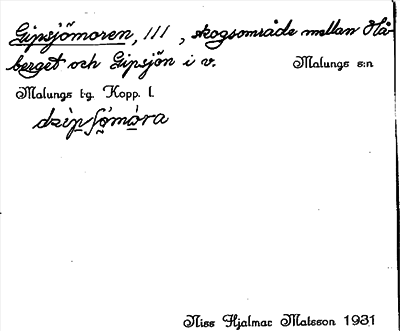 Gipsjömoren, III, skogsområde mellan Hå-
berget och Gipsjön i v.
Malungs s:n
Malungs t:g. Kopp. l.
Niss Hjalmar Matsson 1931